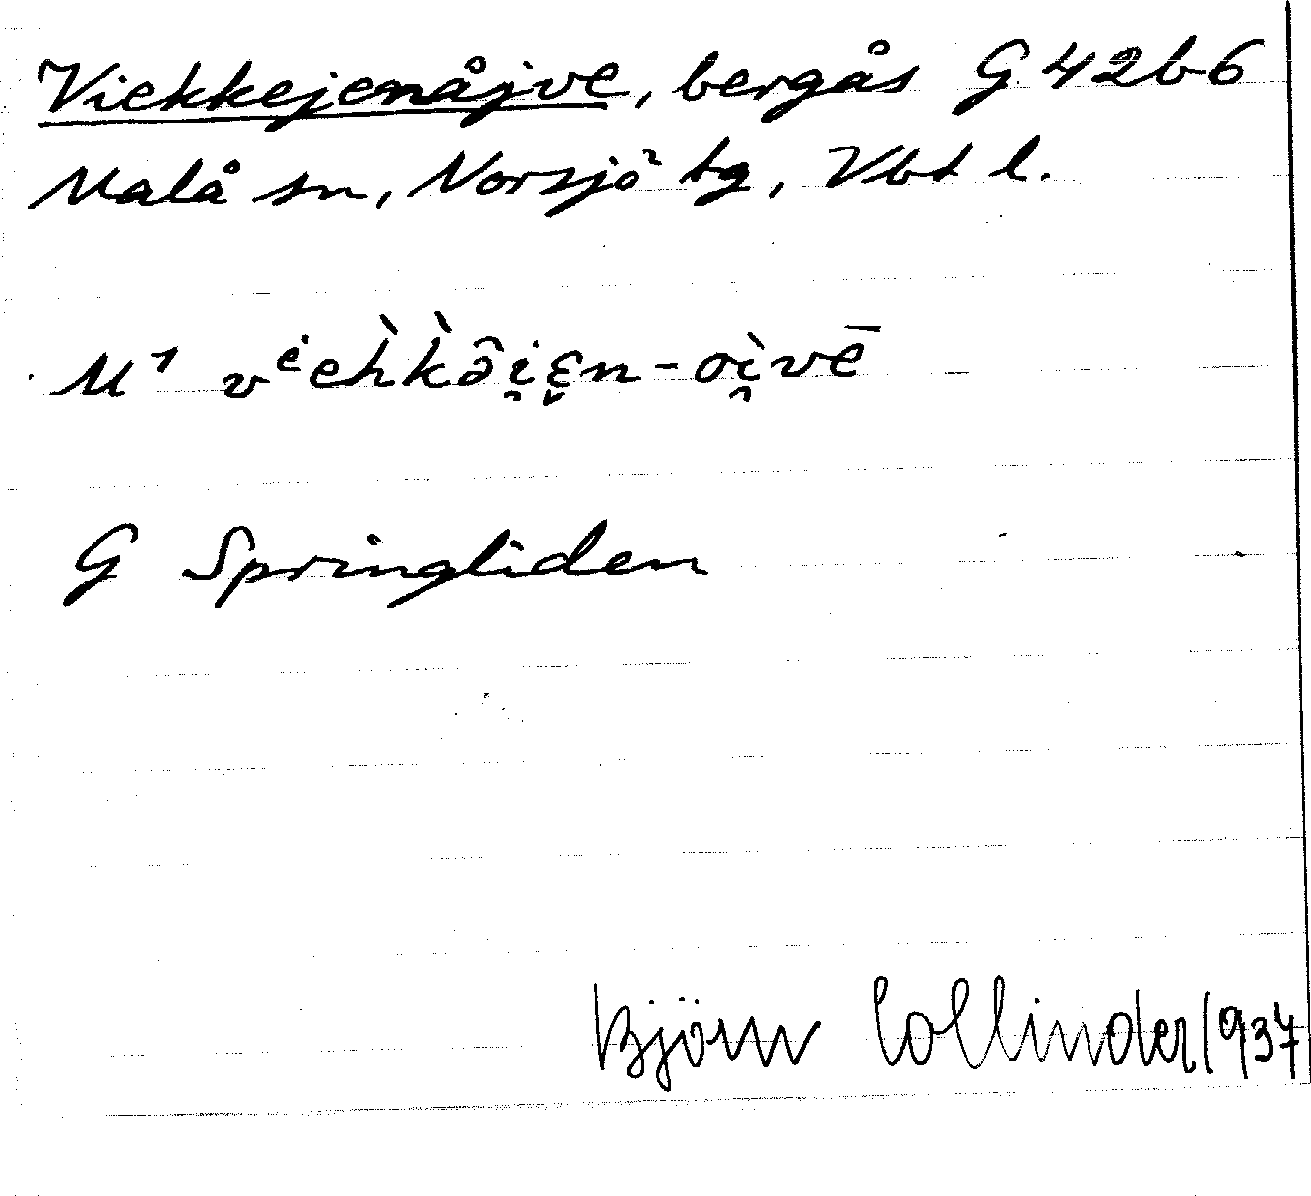 Viekkejenåjve, bergås G 42b6
Malå sn, Norsjö tg, Vbt l.
M¹ vⁱ̇eh̀k̀ə̂i̯ɛ̬n-oì̯vē
G Springliden
Björn Collinder 1937